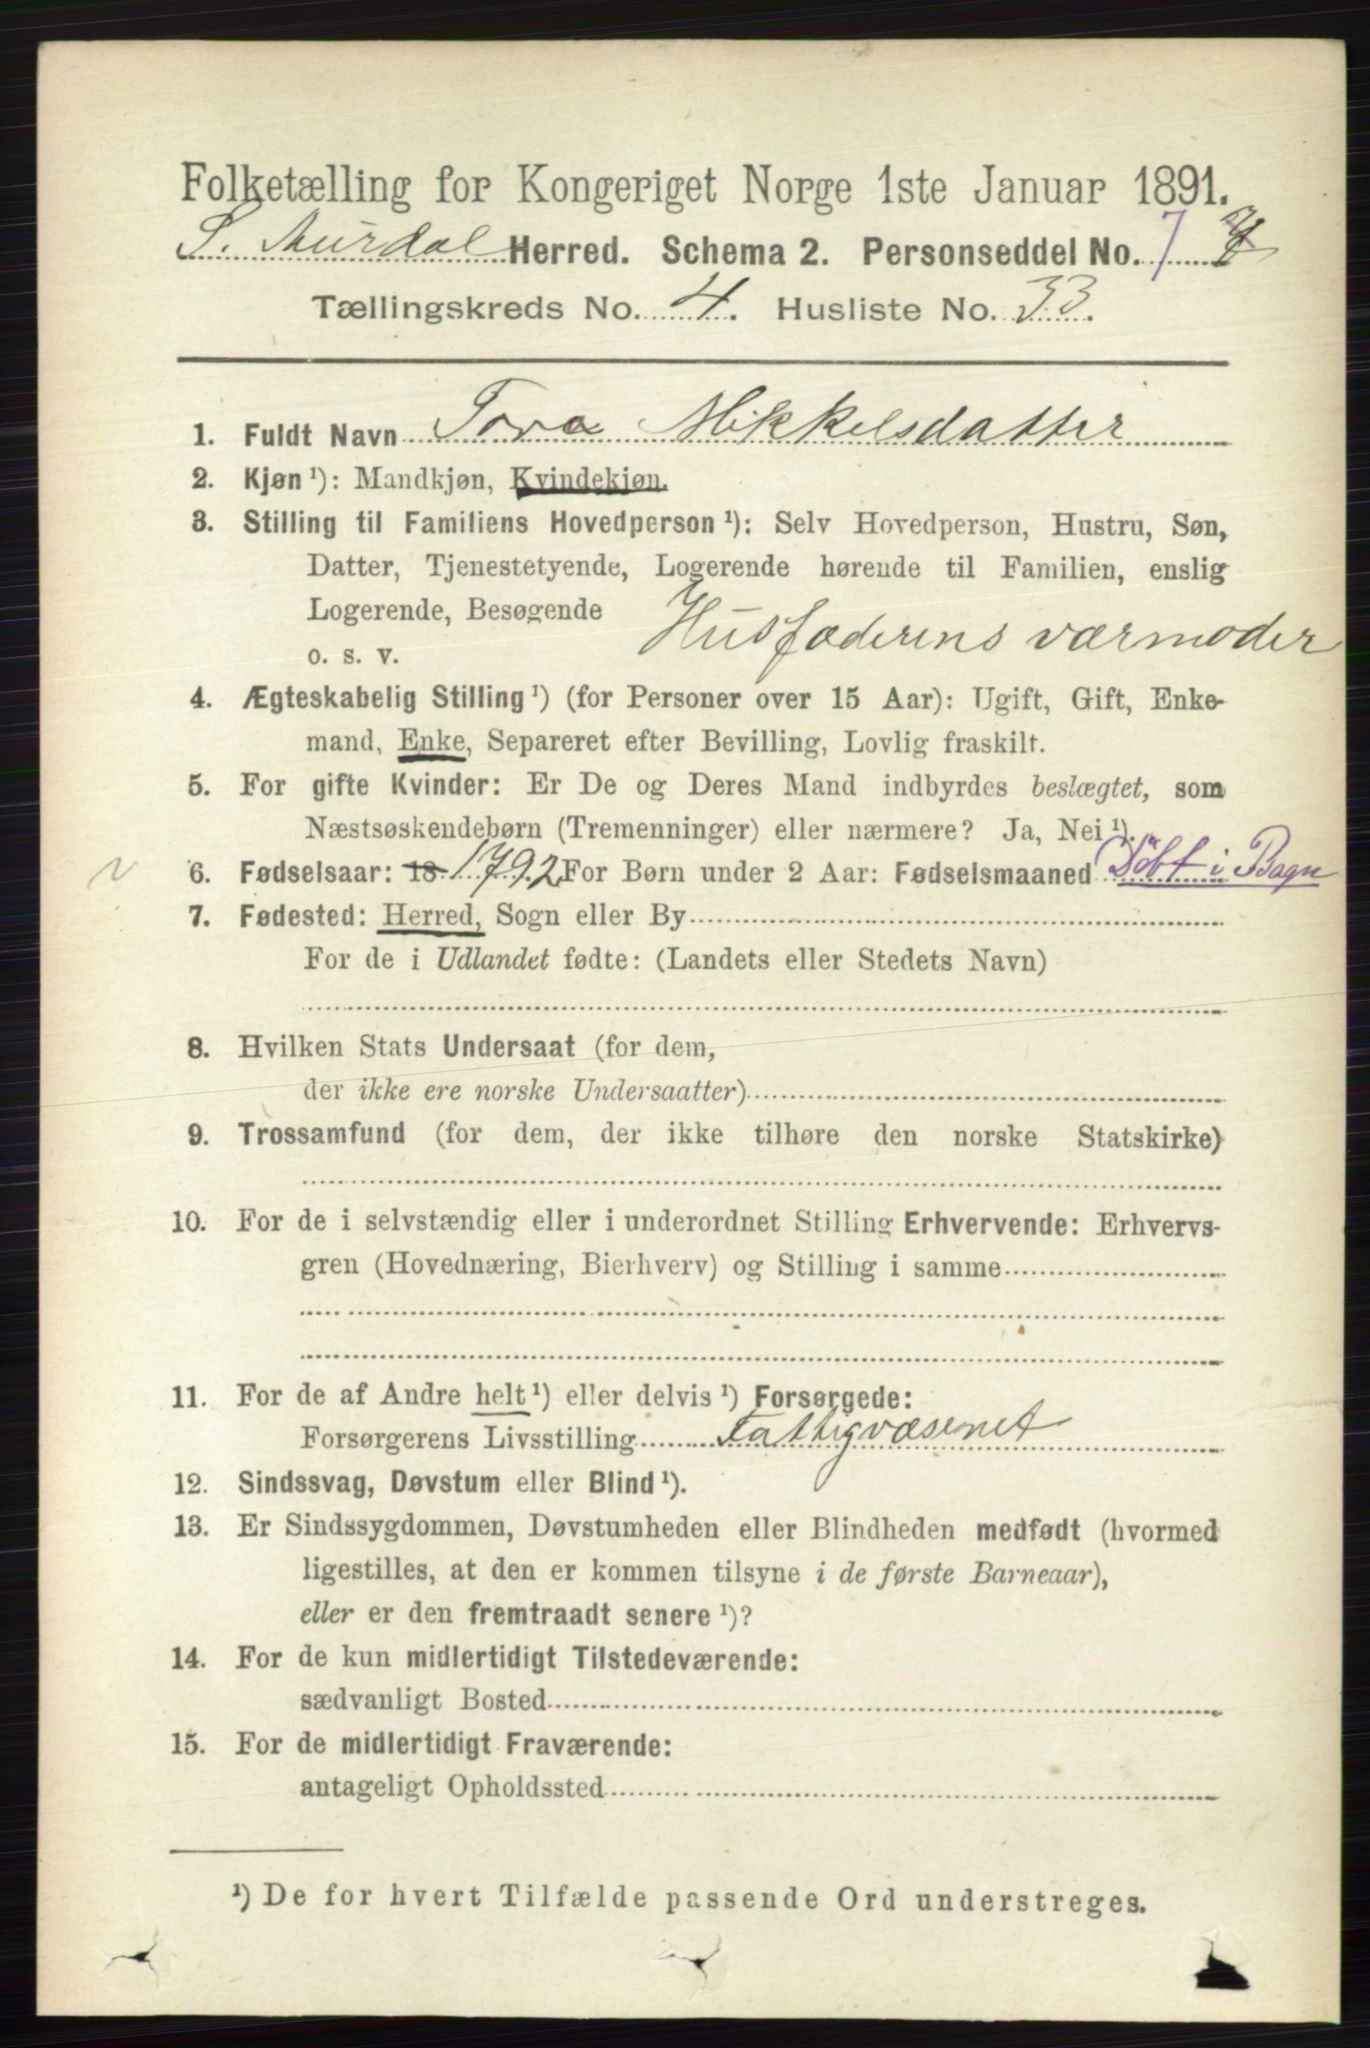 Folketælling for Kongeriget Norge 1ste Januar 1891.
S. Aurdal Herred. Schema 2. Personseddel No. 7
Tællingskreds No. 4. Husliste No. 33.
1. Fuldt Navn Tora Mikkelsdatter
2. Kjøn ¹): Mandkjøn, Kvindekjøn.
3. Stilling til Familiens Hovedperson ¹): Selv Hovedperson, Hustru, Søn,
Datter, Tjenestetyende, Logerende hørende til Familien, enslig
Logerende, Besøgende
o. s. v. Husfaderens værmoder
4. Ægteskabelig Stilling ¹) (for Personer over 15 Aar): Ugift, Gift, Enke-
mand, Enke, Separeret efter Bevilling, Lovlig fraskilt.
5. For gifte Kvinder: Er De og Deres Mand indbyrdes beslægtet, som
Næstsøskendebørn (Tremenninger) eller nærmere? Ja, Nei ¹).
6. Fødselsaar: 18 1792 For Børn under 2 Aar: Fødselsmaaned Döbt i Bagn
7. Fødested: Herred, Sogn eller By
For de i Udlandet fødte: (Landets eller Stedets Navn)
8. Hvilken Stats Undersaat (for dem,
der ikke ere norske Undersaatter)
9. Trossamfund (for dem, der ikke tilhøre den norske Statskirke)
10. For de i selvstændig eller i underordnet Stilling Erhvervende: Erhvervs-
gren (Hovednæring, Bierhverv) og Stilling i samme
11. For de af Andre helt ¹) eller delvis ¹) Forsørgede:
Forsørgerens Livsstilling Fattigvæsenet
12. Sindssvag, Døvstum eller Blind ¹).
13. Er Sindssygdommen, Døvstumheden eller Blindheden medfødt (hvormed
ligestilles, at den er kommen tilsyne i de første Barneaar),
eller er den fremtraadt senere ¹)?
14. For de kun midlertidigt Tilstedeværende:
sædvanligt Bosted
15. For de midlertidigt Fraværende:
antageligt Opholdssted
¹) De for hvert Tilfælde passende Ord understreges.